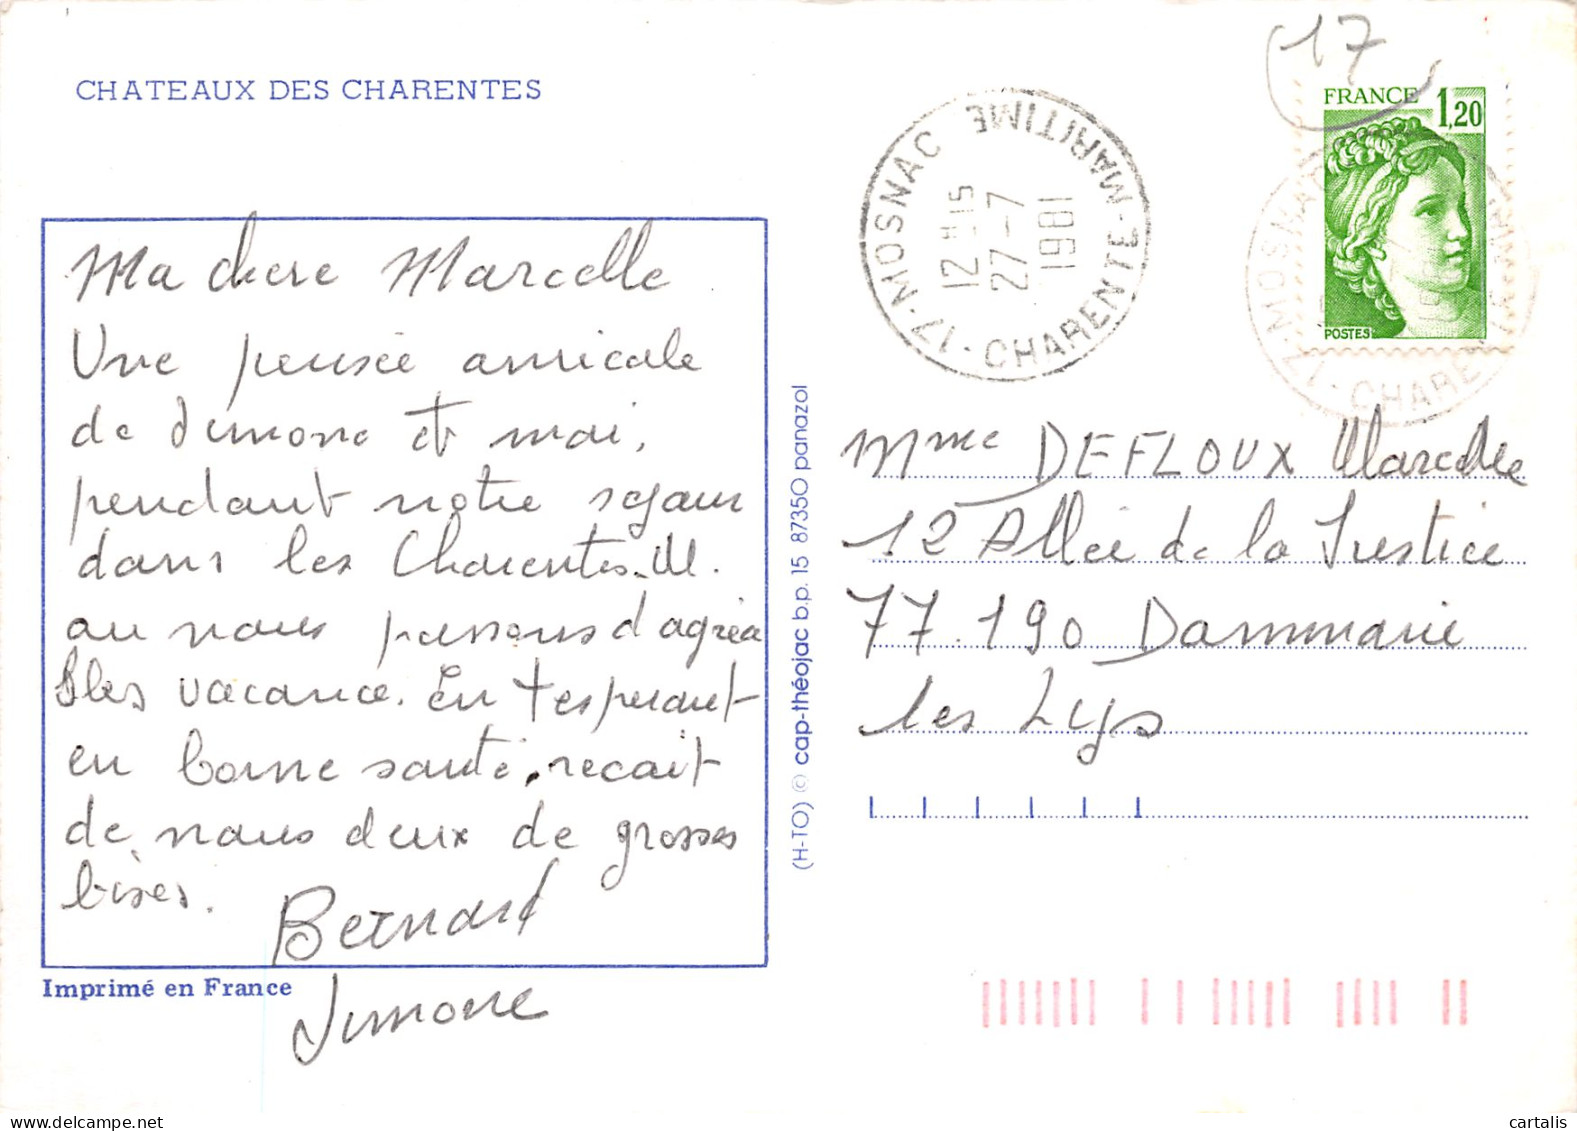 CHATEAUX DES CHARENTES
Ma chere Marcelle
Une pensée amicale
de Simone et moi,
pendant notre sejour
dans les Charentes.M.
ou nous passons d'agréa
bles vacance. En t'esperant
en bonne santé, recoit
de nous deux de grosses
bises.
Bernard
Simone
Imprimé en France
(H-TO) © cap-théojac b.p. 15 87350 panazol
17-MOSNAC CHARENTE-MARITIME
12H15
27-7
1981
17
FRANCE 1,20
POSTES
17-MOSNAC
CHARENTE
Mme DEFLOUX Marcelle
12 Allée de la Justice
77.190 Dammarie
les Lys
cartalis